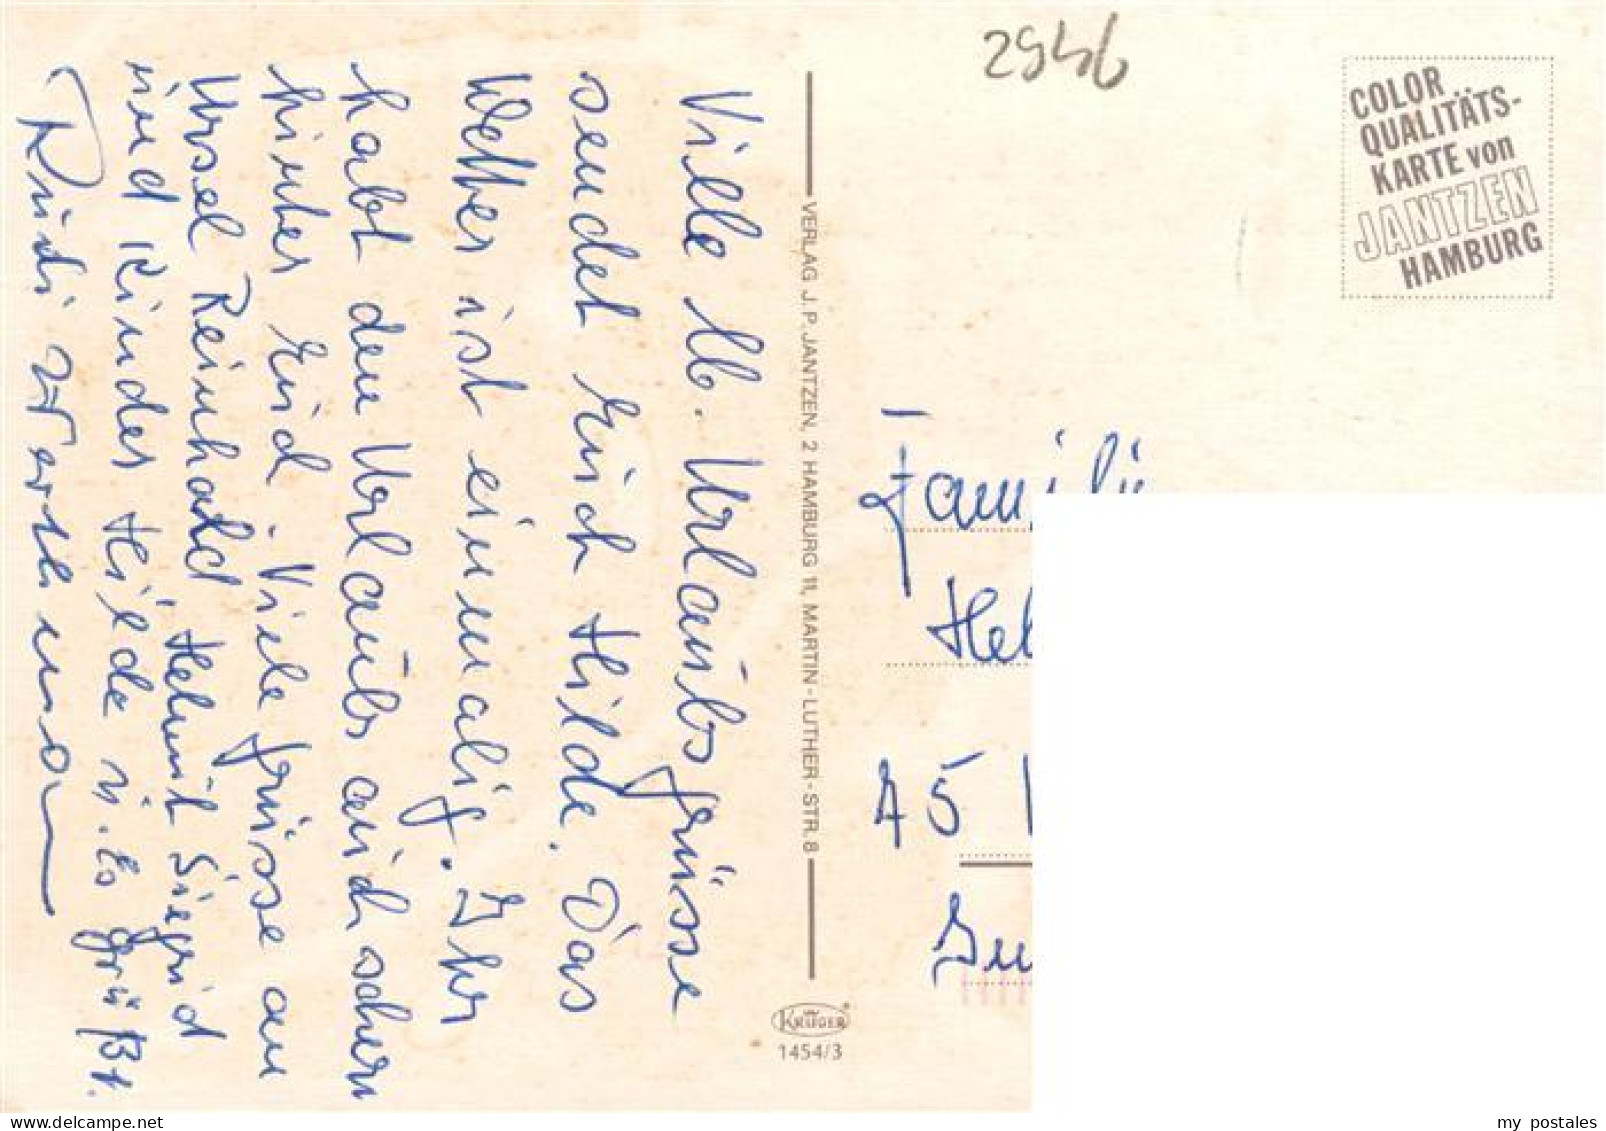 Viele lb. Urlaubsgrüsse
sendet Euch Hilde. Das
Wetter ist einmalig. Ihr
habt den Urlaub auch schon
hinter Euch. Viele Grüsse an
Ursel Reinhold Helmut Siegrid
und Kinder Hilde u. es grüßt
Rudi
VERLAG J. P. JANTZEN, 2 HAMBURG 11, MARTIN-LUTHER-STR. 8
KRÜGER
1454/3
2946
COLOR
QUALITÄTS-
KARTE von
JANTZEN
HAMBURG
Familie
Hel
45
my postales